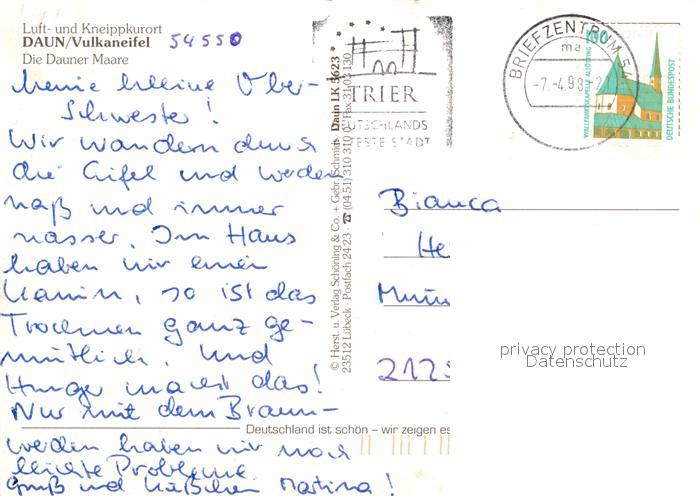 Luft- und Kneippkurort
DAUN/Vulkaneifel 54550
Die Dauner Maare
meine kleine Ober-
Schwester!
Wir wandern durch
die Eifel und werden
naß und immer
nasser. Im Haus
haben wir einen
Kamin, so ist das
Trocknen ganz ge-
mütlich. Und
Hunger macht das!
Nur mit dem Braun-
werden haben wir noch
leichte Probleme.
Gruß und Küßchen Martina!
© Herst. u. Verlag Schöning & Co. + Gebr. Schmidt Daun LK 3623
23512 Lübeck · Postfach 24 23 · ☎ (04 51) 310 310
TRIER
DEUTSCHLANDS
STADT
BRIEFZENTRUM 54
ma
-7.-4.98
100
DEUTSCHE BUNDESPOST
WALLFAHRTSKAPELLE ALTÖTTING
Bianca
He
212
privacy protection
Datenschutz
Deutschland ist schön – wir zeigen es